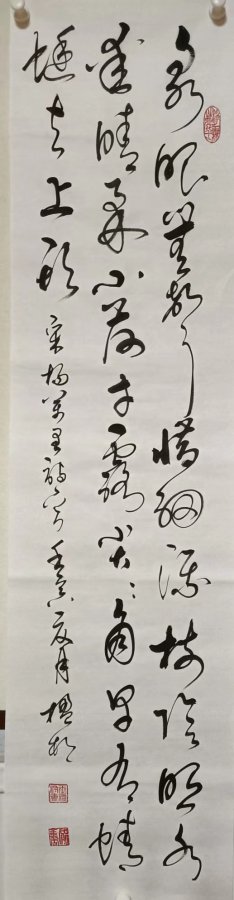 泉眼無聲惜細流樹陰照水
愛晴柔小荷才露尖尖角早有蜻
蜓立上頭
宋楊萬里詩 壬寅夏月